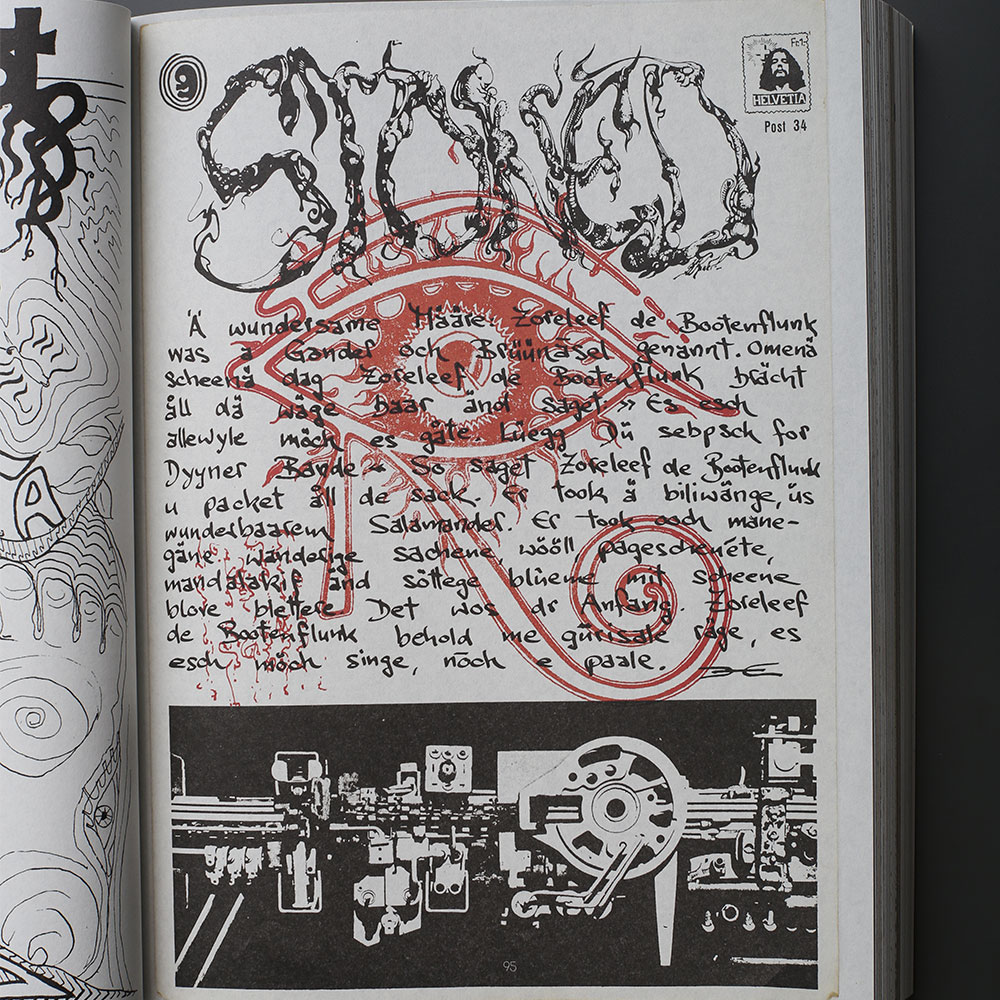 9
STONED
Fr.1.-
HELVETIA
Post 34
Ä wundersame Hääre Zoreleef de Bootenflunk
was ä Gandef och Brüünäsel genannt. Omenä
scheenä dag Zoreleef de Bootenflunk brächt
äll dä wäge baar änd saget » Es esch
allewyle mäch es gäte. Lüegg Dü sebpsck for
Dyyner Bande - So saget Zoreleef de Bootenflunk
u packet äll de sack. Er took ä biliwänge, üs
wunderbaarem Salamander. Er took och mane-
gäne wänderige sachene, wööll pageschenéte,
mandalakif änd söttege blüeme mit scheene
blove blettere Det wos dr Anfang. Zoreleef
de Bootenflunk behold me gürisale räge, es
esch möch singe, nöch e paale.
A
95